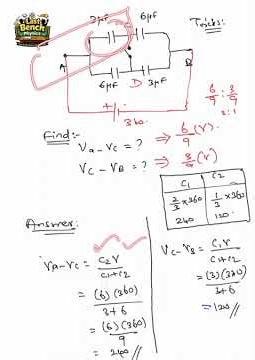 Last
Bench
Physics
Tricks:
3μF 6μF
A B
6μF D 3μF
6/9 : 3/9
2 : 1
360
Find:-
Va-Vc = ? ⇒ 6/9 (V)
Vc-VB = ? ⇒ 3/9 (V)
C1 C2
2/3 × 360 1/3 × 360
240 120
Answer:
Va-Vc = C2V/C1+C2
= (6)(360)/3+6
= (6)(360)/9
= 240
Vc-VB = C1V/C1+C2
= (3)(360)/3+6
= 120